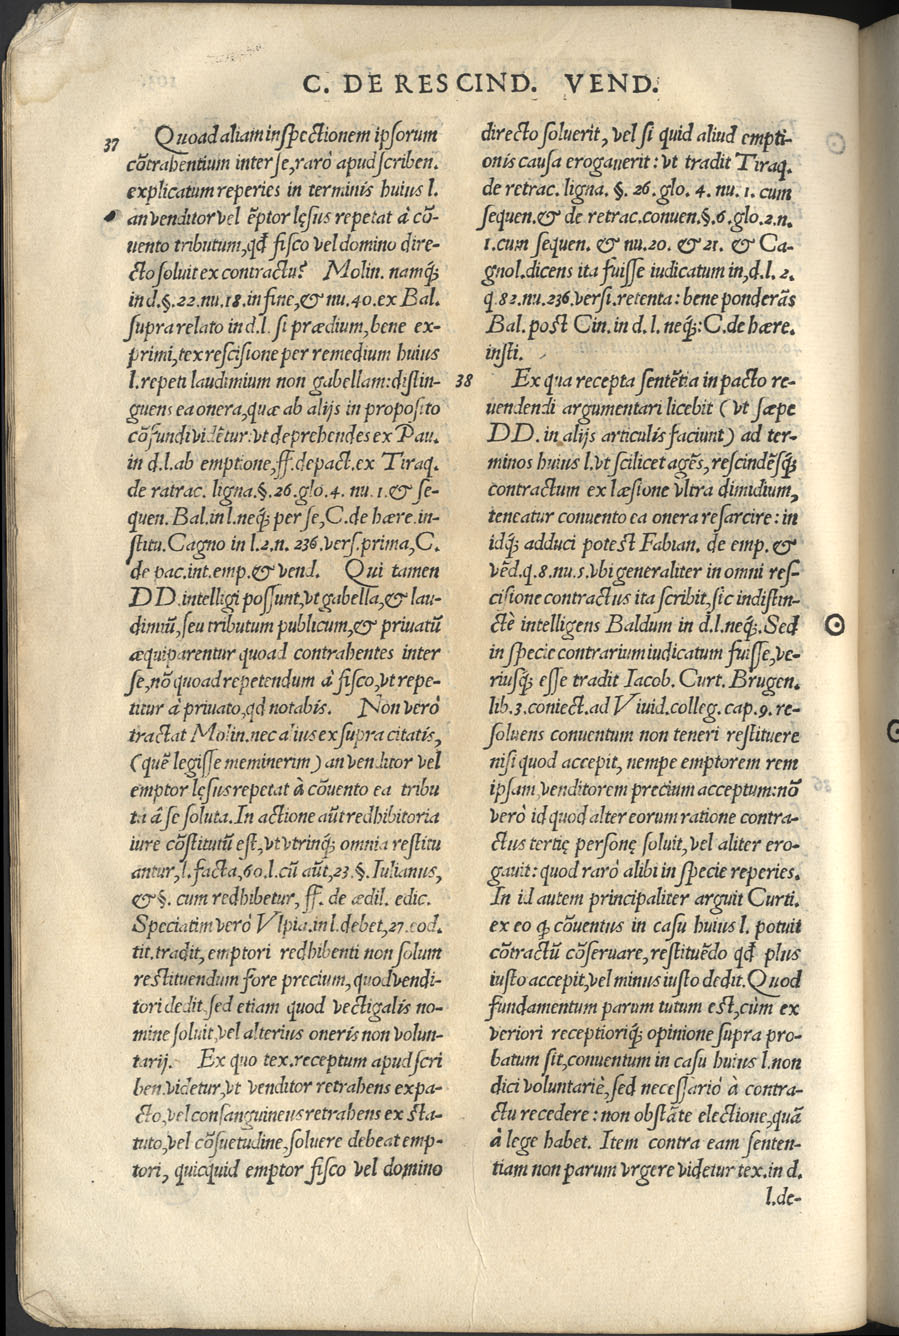 C. DE RESCIND. VEND.
37
Quoad aliam inſpectionem ipſorum
cõtrahentium inter ſe, rarò apud ſcriben.
explicatum reperies in terminis huius l.
an venditor vel ẽptor lęſus repetat à cõ-
uento tributum, qđ fiſco vel domino dire-
cto ſoluit ex contractu? Molin. namq́;
in d. §. 22. nu. 18. in fine, & nu. 40. ex Bal.
ſupra relato in d. l. ſi prædium, bene ex-
primi, tex reſciſione per remedium huius
l. repeti laudimium non gabellam: diſtin-
guens ea onera, quæ ab alijs in propoſito
cõfundi vidẽtur: vt deprehendes ex Pau.
in d. l. ab emptione, ff. de pact. ex Tiraq.
de ratrac. ligna. §. 26. glo. 4. nu. 1. & ſe-
quen. Bal. in l. neq́; per ſe, C. de hære. in-
ſtitu. Cagno in l. 2. n. 236. verſ. prima, C.
de pac. int. emp. & vend. Qui tamen
DD. intelligi poſſunt, vt gabella, & lau-
dimiũ, ſeu tributum publicum, & priuatũ
æquiparentur quoad contrahentes inter
ſe, nõ quoad repetendum à fiſco, vt repe-
titur à priuato, qđ notabis. Non verò
tractat Molin. nec alius ex ſupra citatis,
(quẽ legiſſe meminerim) an venditor vel
emptor lęſus repetat à cõuento ea tribu
ta â ſe ſoluta. In actione aũt redhibitoria
iure cõſtitutũ eſt, vt vtrinq́; omnia reſtitu
antur, l. facta, 60. l. cũ aũt, 23. §. Iulianus,
& §. cum redhibetur, ff. de ædil. edic.
Speciatim verò Vlpia. in l. debet, 27. eod.
tit. tradit, emptori redhibenti non ſolum
reſtituendum fore precium, quod vendi-
tori dedit, ſed etiam quod vectigalis no-
mine ſoluit, vel alterius oneris non volun-
tarij. Ex quo tex. receptum apud ſcri
ben. videtur, vt venditor retrahens ex pa-
cto, vel conſanguineus retrahens ex ſta-
tuto, vel cõſuetudine, ſoluere debeat emp-
tori, quicquid emptor fiſco vel domino
directo ſoluerit, vel ſi quid aliud empti-
onis cauſa erogauerit: vt tradit Tiraq.
de retrac. ligna. §. 26. glo. 4. nu. 1. cum
ſequen. & de retrac. conuen. §. 6. glo. 2. n.
1. cum ſequen. & nu. 20. & 21. & Ca-
gnol. dicens ita fuiſſe iudicatum in, d. l. 2.
q. 82. nu. 236. verſi. retenta: bene ponderãs
Bal. poſt Cin. in d. l. neq́;: C. de hære.
inſti.
38
Ex qua recepta ſentẽtia in pacto re-
uendendi argumentari licebit (vt ſæpe
DD. in alijs articulis faciunt) ad ter-
minos huius l. vt ſcilicet agẽs, reſcindẽſq́;
contractum ex læſione vltra dimidium,
teneatur conuento ea onera reſarcire: in
idq́; adduci poteſt Fabian. de emp. &
vẽd. q. 8. nu. 5. vbi generaliter in omni reſ-
ciſione contractus ita ſcribit, ſic indiſtin-
ctè intelligens Baldum in d. l. neq́;. Sed
in ſpecie contrarium iudicatum fuiſſe, ve-
riuſq́; eſſe tradit Iacob. Curt. Brugen.
lib. 3. coniect. ad Viuid. colleg. cap. 9. re-
ſoluens conuentum non teneri reſtituere
niſi quod accepit, nempe emptorem rem
ipſam, venditorem precium acceptum: nõ
verò id quod alter eorum ratione contra-
ctus tertię perſonę ſoluit, vel aliter ero-
gauit: quod rarò alibi in ſpecie reperies.
In id autem principaliter arguit Curti.
ex eo q̃ cõuentus in caſu huius l. potuit
cõtractũ cõſeruare, reſtituẽdo qđ plus
iuſto accepit, vel minus iuſto dedit. Quod
fundamentum parum tutum eſt, cùm ex
veriori receptioriq́; opinione ſupra pro-
batum ſit, conuentum in caſu huius l. non
dici voluntariè, ſed neceſſariò à contra-
ctu recedere: non obſtãte electione, quã
à lege habet. Item contra eam ſenten-
tiam non parum vrgere videtur tex. in d.
l. de-